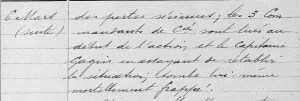 6 Mars des pertes sérieuses ; les 3 Com
(suite) mandants de Cie sont tués au
début de l'action, et le Capitaine
en essayant de rétablir
la situation, tombe lui-même
mortellement frappé.